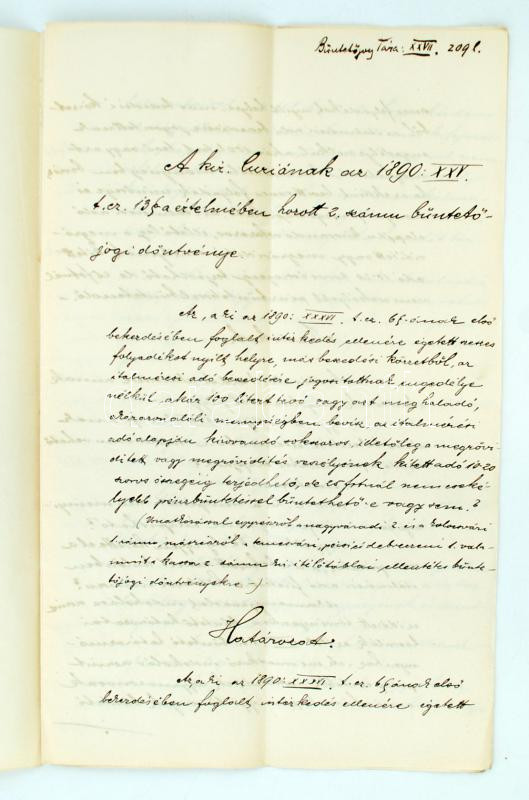 Büntetőjog Tára: XXVII. 209 l.
A kir. Curiának az 1890: XXV.
t.cz. 13§a értelmében hozott 2. számu büntető-
jogi döntvénye
Az, a ki az 1890: XXXVI. t.cz. 6§-ának első
bekezdésében foglalt intézkedés ellenére égetett szeszes
folyadékot nyilt helyre, más beszedési körzetből, az
italmérési adó beszedésére jogositottnak engedélye
nélkül, akár 100 litert tevő vagy azt meghaladó,
akár azon alóli mennyiségben bevisz, az italmérési
adó alapján kiszabandó sokszoros, illetőleg a megrövi-
ditett, vagy megrövidités veszélyének kitett adó 10-20
szoros összegéig terjedhető, de 25 frtnál nem cseké-
lyebb pénzbüntetéssel büntethető-e vagy sem?
(Vonatkozással egyrészről a nagyváradi 2. és a kolozsvári
1. számu, másrészről a temesvári, pécsi és debreczeni 1. vala-
mint a kassai 2. számu kir. itélőtáblai ellentétes bünte-
tőjogi döntvényekre -)
Határozat:
Az, a ki az 1890: XXXVI. t.cz. 6§ának első
bekezdésében foglalt intézkedés ellenére égetett